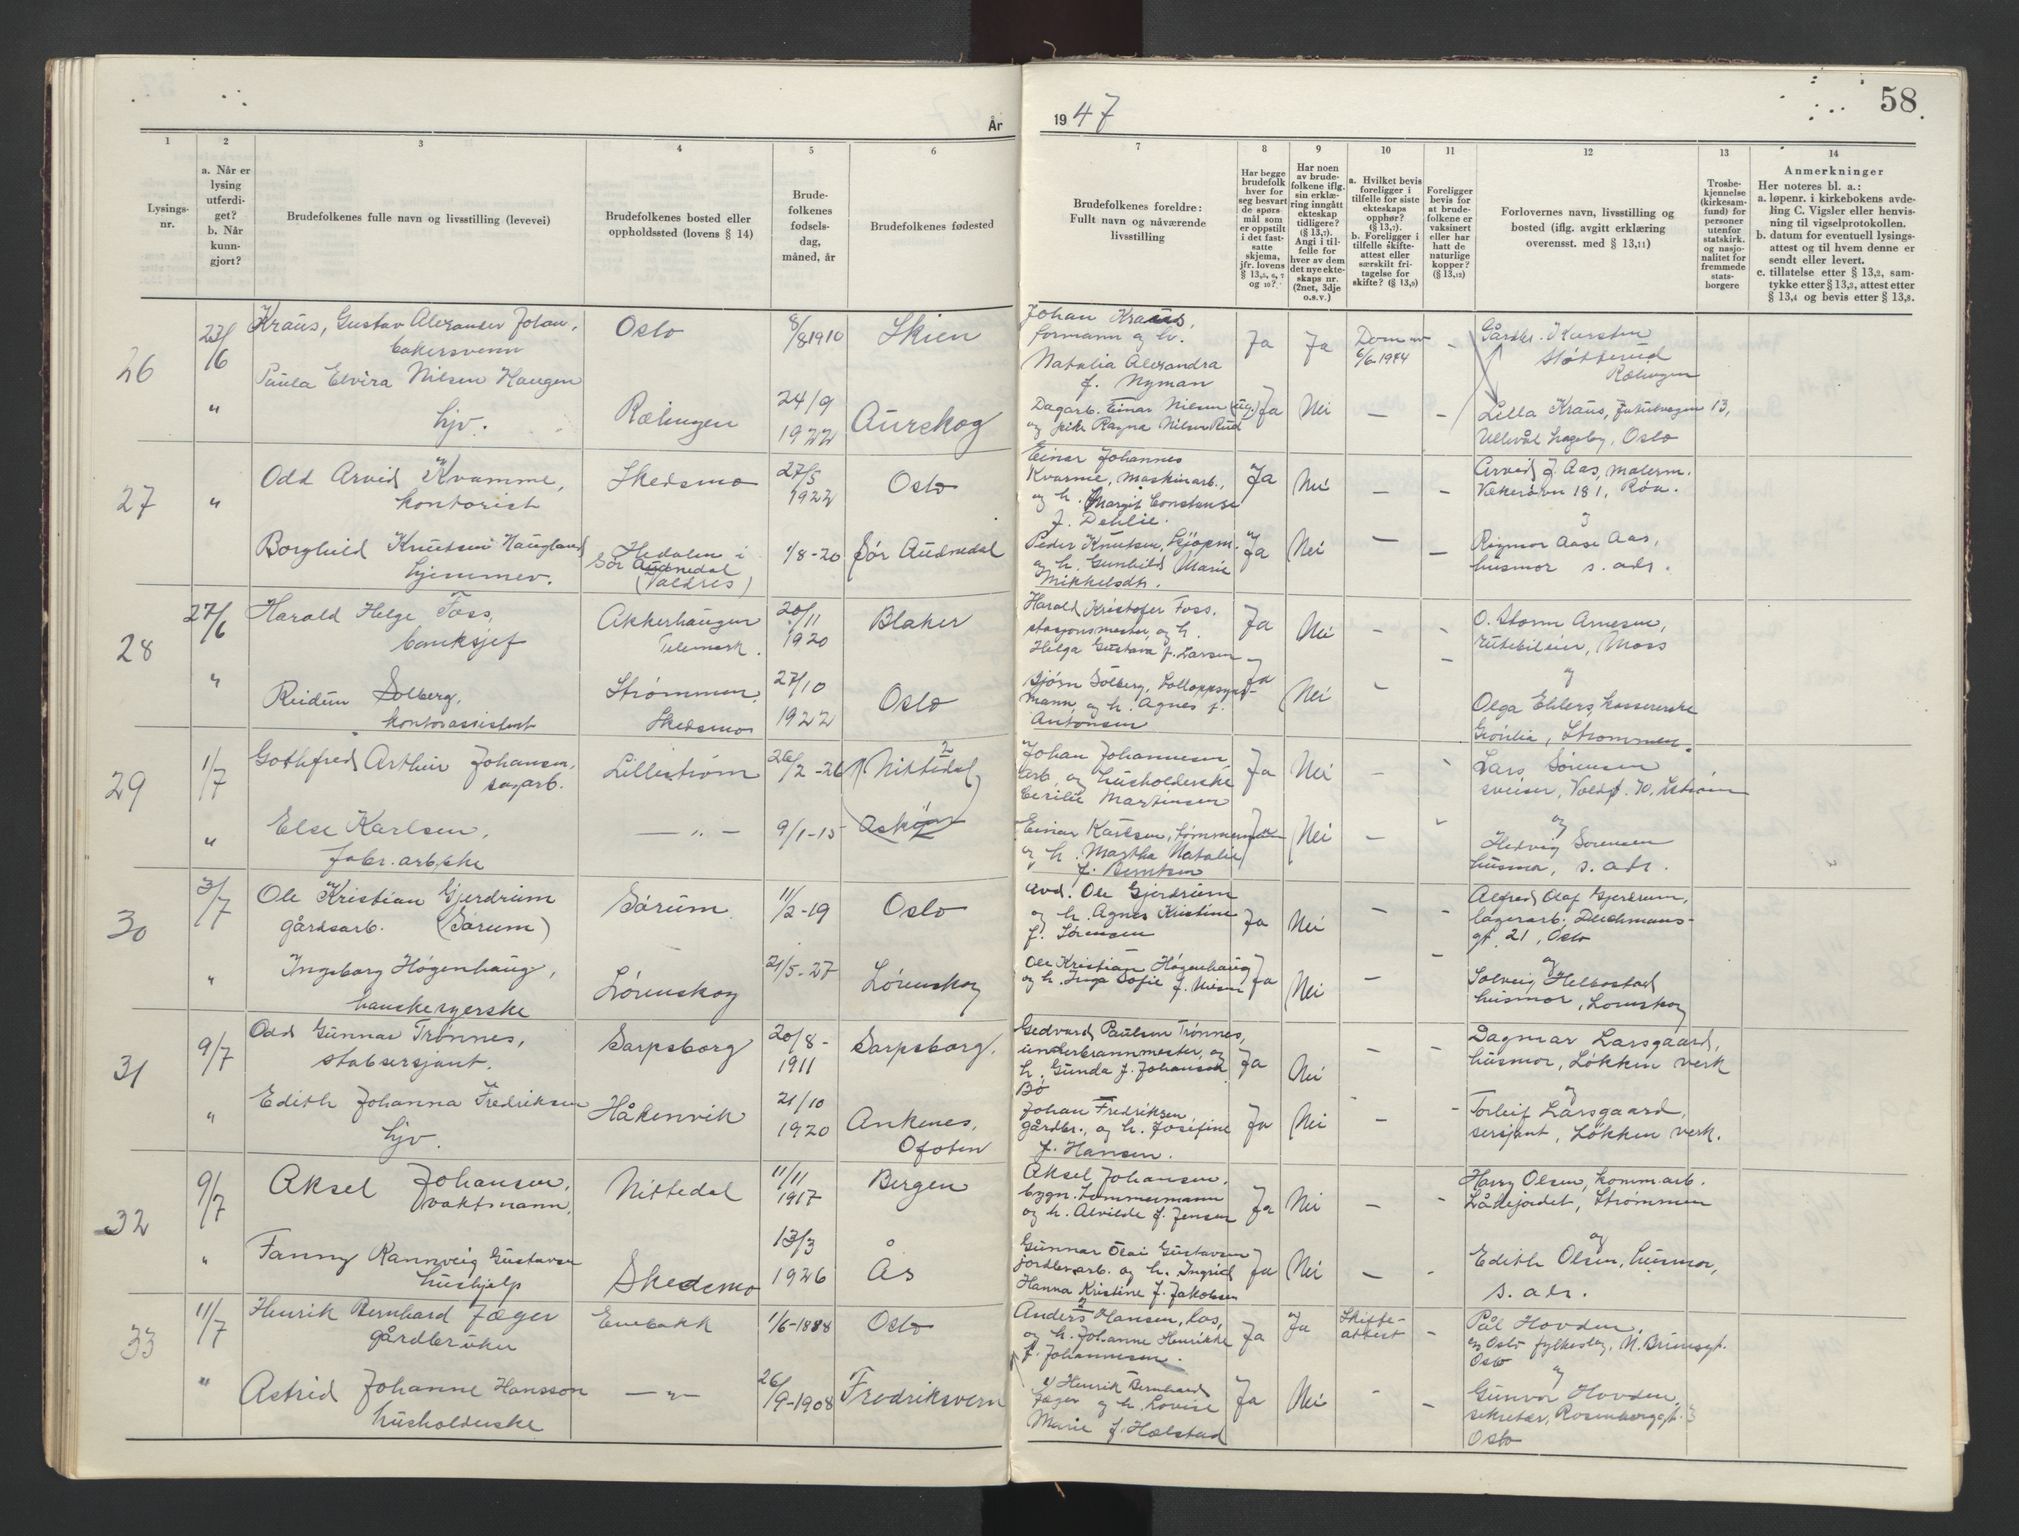 År
19 47
58
1
2
3
4
5
6
7
8
9
10
11
12
13
14
Lysings-
nr.
a. Når er
lysing
utferdi-
get?
b. Når
kunn-
gjort?
Brudefolkenes fulle navn og livsstilling (levevei)
Brudefolkenes bosted eller
oppholdssted (lovens § 14)
Brude-
folkenes
fødsels-
dag,
måned, år
Brudefolkenes fødested
Brudefolkenes foreldre:
Fullt navn og nåværende
livsstilling
Har begge
brudefolk
hver for
seg besvart
de spørs-
mål som
er oppstilt
i det fast-
satte
skjema,
jfr. lovens
§ 13,5, 6, 7
og 10?
Har noen
av brude-
folkene iflg.
sin erklæ-
ring inngått
ekteskap
tidligere?
(§ 13,7).
Angi i til-
felle for
hver av dem
det nye ekte-
skaps nr.
(2net, 3dje
o.s.v.)
a. Hvilket bevis
foreligger i
tilfelle for siste
ekteskaps
opphør?
(§ 13,7).
b. Foreligger i
tilfelle skifte-
attest eller
særskilt fri-
tagelse for
skifte? (§ 13,9)
Foreligger
bevis for
at brude-
folkene er
vaksinert
eller har
hatt de
naturlige
kopper?
(§ 13,12)
Forlovernes navn, livsstilling og
bosted (iflg. avgitt erklæring
overensst. med § 13,11)
Trosbe-
kjennelse
(kirkesam-
fund) for
personer
utenfor
statskirk.
og nasjo-
nalitet for
fremmede
stats-
borgere
Anmerkninger
Her noteres bl. a.:
a. løpenr. i kirkebokens avde-
ling C. Vigsler eller henvis-
ning til vigselprotokollen.
b. datum for eventuell lysings-
attest og til hvem denne er
sendt eller levert.
c. tillatelse etter § 13,2, sam-
tykke etter § 13,3, attest etter
§ 13,4 og bevis etter § 13,8.
26
23/6
Kraus, Gustav Alexander Johan,
bakersvenn
Oslo
8/8 1910
Skien
Johan Kraus,
formann og h.
Natalia Alexandra
f. Nyman
Ja
Ja
Dom av
6/6-1944
-
Gårdbr. Karsten
Støtterud
Rælingen
"
Paula Elvira Nilsen Haugen
hjv.
Rælingen
24/9
1922
Aurskog
Dagarb. Einar Nilsen (ug.)
og pike Ragna Nilsen Rud
Ja
Nei
-
-
Lilla Kraus, 13,
Ullevål hageby, Oslo
27
"
Odd Arvid Kvamme,
kontorist
Skedsmo
27/5
1922
Oslo
Einar Johannes
Kvamme, maskinarb.,
og h. Margit Constanse
f. Dehlie.
Ja
Nei
-
-
Arvid J. Aas, malerm.
181, Røa.
Borghild Knutsen Haugland
hjemmev.
Hedalen i
Sør Audnedal
(Valdres)
1/8-20
Sør Audnedal
Peder Knutsen,
og h. Gunhild Marie
Mikkelsdt.
Ja
Nei
-
-
Rigmor Aase Aas,
husmor s. adr.
28
27/6
Harald Helge Foss,
banksjef
Akkerhaugen
Telemark.
20/11
1920
Blaker
Harald Kristofer Foss,
stasjonsmester, og h.
Helga Gustava f. Larsen
Ja
Nei
-
-
O. Storm Arnesen,
rutebileier, Moss
og
"
Reidun Solberg,
kontorassistent
Strømmen,
Skedsmo
27/10
1922
Oslo
Bjørn Solberg, tolloppsyns-
mann, og h. Agnes f.
Antonsen
Ja
Nei
-
-
Olga Ehlers, kassererske
Strømmen.
29
1/7
Gothfred Arthur Johansen,
sagarb.
Lillestrøm
26/2-26
(Nittedal)
Johan Johannesen,
arb. og husholderske
Cecilie Martinsen
Ja
Nei
-
-
Lars Sørensen
sveiser, 10,
og
"
Else Karlsen,
fabr.arb.ske
— " —
9/1-15
Askim
Einar Karlsen, tømmermann
og h. Martha Natalie
f. Berntsen
Ja
Nei
-
-
Hedvig Sørensen
husmor, s. adr.
30
3/7
Ole Kristian Gjerdrum
gårdsarb. (Sørum)
Sørum
11/2-19
Oslo
avd. Ole Gjerdrum
og h. Agnes Kristine
f. Sørensen
Ja
Nei
-
-
Alfred Olaf Gjerdrum,
lagerarb. Deichmans-
gt. 21, Oslo
og
"
Ingeborg Høgenhaug,
hanskesyerske
Lørenskog
21/5-27
Lørenskog
Ole Kristian Høgenhaug
og h. Inga Sofie f. Nilsen
Ja
Nei
-
-
Solveig Helbostad
husmor, Lørenskog
31
9/7
Odd Gunnar Trønnes,
stabsersjant.
Sarpsborg
20/8-
1911
Sarpsborg.
Gedvard Paulsen Trønnes,
underbrannmester, og
h. Gunda f. Johansen
Bø
Ja
Nei
-
-
Dagmar Larsgaard,
husmor, Løkken verk
og
"
Edith Johanna Fredriksen
hjv.
Håkenvik
21/10
1920
Ankenes,
Ofoten
Johan Fredriksen,
gårdbr., og h. Josefine
f. Hansen.
Ja
Nei
-
-
Torleif Larsgaard,
sersjant, Løkken verk.
32
9/7
Aksel Johansen,
vaktmann.
Nittedal
11/11
1917
Bergen
Aksel Johansen,
bygn.tømmermann
og h. Alvilde f. Jensen
Ja
Nei
-
-
Harry Olsen, komm.arb.
Lådejordet, Strømmen
og
"
Fanny Rannveig Gustavsen
hushjelp
Skedsmo
13/3
1926
Ås
Gunnar Olai Gustavsen
jordbr.arb. og h. Ingrid
Hanna Kristine f. Jakobsen
Ja
Nei
-
-
Edith Olsen, husmor,
s. adr.
33
11/7
Henrik Bernhard Jæger
gårdbruker
Enebakk
1/6-1888
Oslo
Anders Hansen, los,
og h. Johanne Henrikke
f. Johannesen.
Ja
Ja
Skifte-
attest
-
Pål Hovden,
Oslo fylkeslag, N. Brunsgt.
Oslo
og
"
Astrid Johanne Hansson
husholderske
— " —
26/9-1908
Fredriksvern
Henrik Bernhard
Jæger og h. Lovise
Marie f. Halstad
Ja
Nei
-
-
Gunvor Hovden,
sekretær, Rosenborggt. 3
Oslo